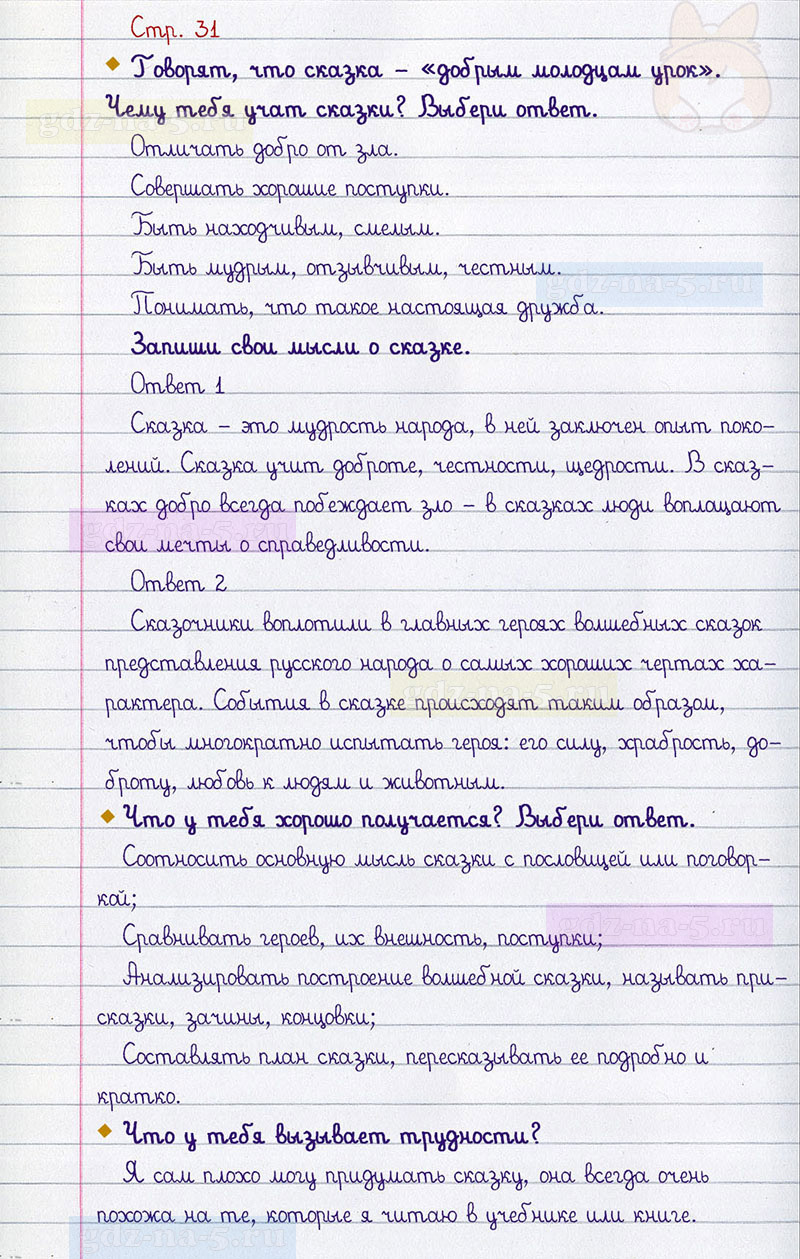 Стр. 31
Говорят, что сказка – «добрым молодцам урок».
Чему тебя учат сказки? Выбери ответ.
gdz-na-5.ru
Отличать добро от зла.
Совершать хорошие поступки.
Быть находчивым, смелым.
Быть мудрым, отзывчивым, честным.
gdz-na-5.ru
Понимать, что такое настоящая дружба.
Запиши свои мысли о сказке.
Ответ 1
Сказка – это мудрость народа, в ней заключен опыт поко-
лений. Сказка учит доброте, честности, щедрости. В сказ-
ках добро всегда побеждает зло – в сказках люди воплощают
gdz-na-5.ru
свои мечты о справедливости.
Ответ 2
Сказочники воплотили в главных героях волшебных сказок
представления русского народа о самых хороших чертах ха-
gdz-na-5.ru
рактера. События в сказке происходят таким образом,
чтобы многократно испытать героя: его силу, храбрость, до-
броту, любовь к людям и животным.
Что у тебя хорошо получается? Выбери ответ.
Соотносить основную мысль сказки с пословицей или поговор-
кой;
gdz-na-5.ru
Сравнивать героев, их внешность, поступки;
Анализировать построение волшебной сказки, называть при-
сказки, зачины, концовки;
Составлять план сказки, пересказывать ее подробно и
кратко.
Что у тебя вызывает трудности?
Я сам плохо могу придумать сказку, она всегда очень
похожа на те, которые я читаю в учебнике или книге.
gdz-na-5.ru